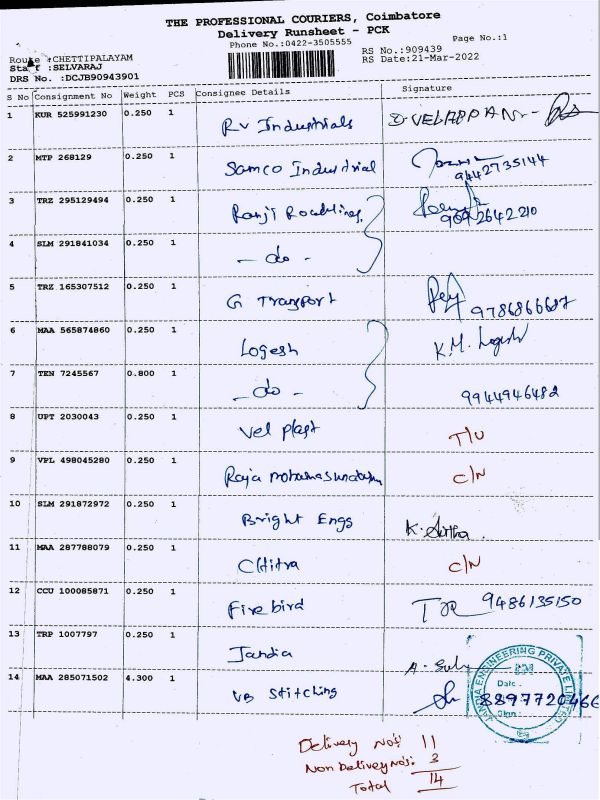 THE PROFESSIONAL COURIERS, Coimbatore
Delivery Runsheet - PCK
Phone No.:0422-3505555
Page No.:1
Route :CHETTIPALAYAM
RS No.:909439
Staff :SELVARAJ
RS Date:21-Mar-2022
DRS No. :DCJB90943901
S No Consignment No Weight PCS Consignee Details Signature
1 KUR 525991230 0.250 1 RV Industrials VELAPPAN
2 MTP 268129 0.250 1 Samco Industrial 9442735144
3 TRZ 295129494 0.250 1 Ranji 9092642210
4 SLM 291841034 0.250 1 - do -
5 TRZ 165307512 0.250 1 G Transport 9786866687
6 MAA 565874860 0.250 1 Logesh K.M. Logesh
7 TEN 7245567 0.800 1 - do - 9944946482
8 UPT 2030043 0.250 1 Vel plast T/U
9 VPL 498045280 0.250 1 Raja C/N
10 SLM 291872972 0.250 1 Bright Engs
11 MAA 287788079 0.250 1 Chitra C/N
12 CCU 100085871 0.250 1 Fire bird 9486135150
13 TRP 1007797 0.250 1
14 MAA 285071502 4.300 1 VB Stitching 8897720466
ENGINEERING PRIVATE LIMITED
Date :
Sign :
Delivery No's: 11
Non Delivery No's: 3
Total 14